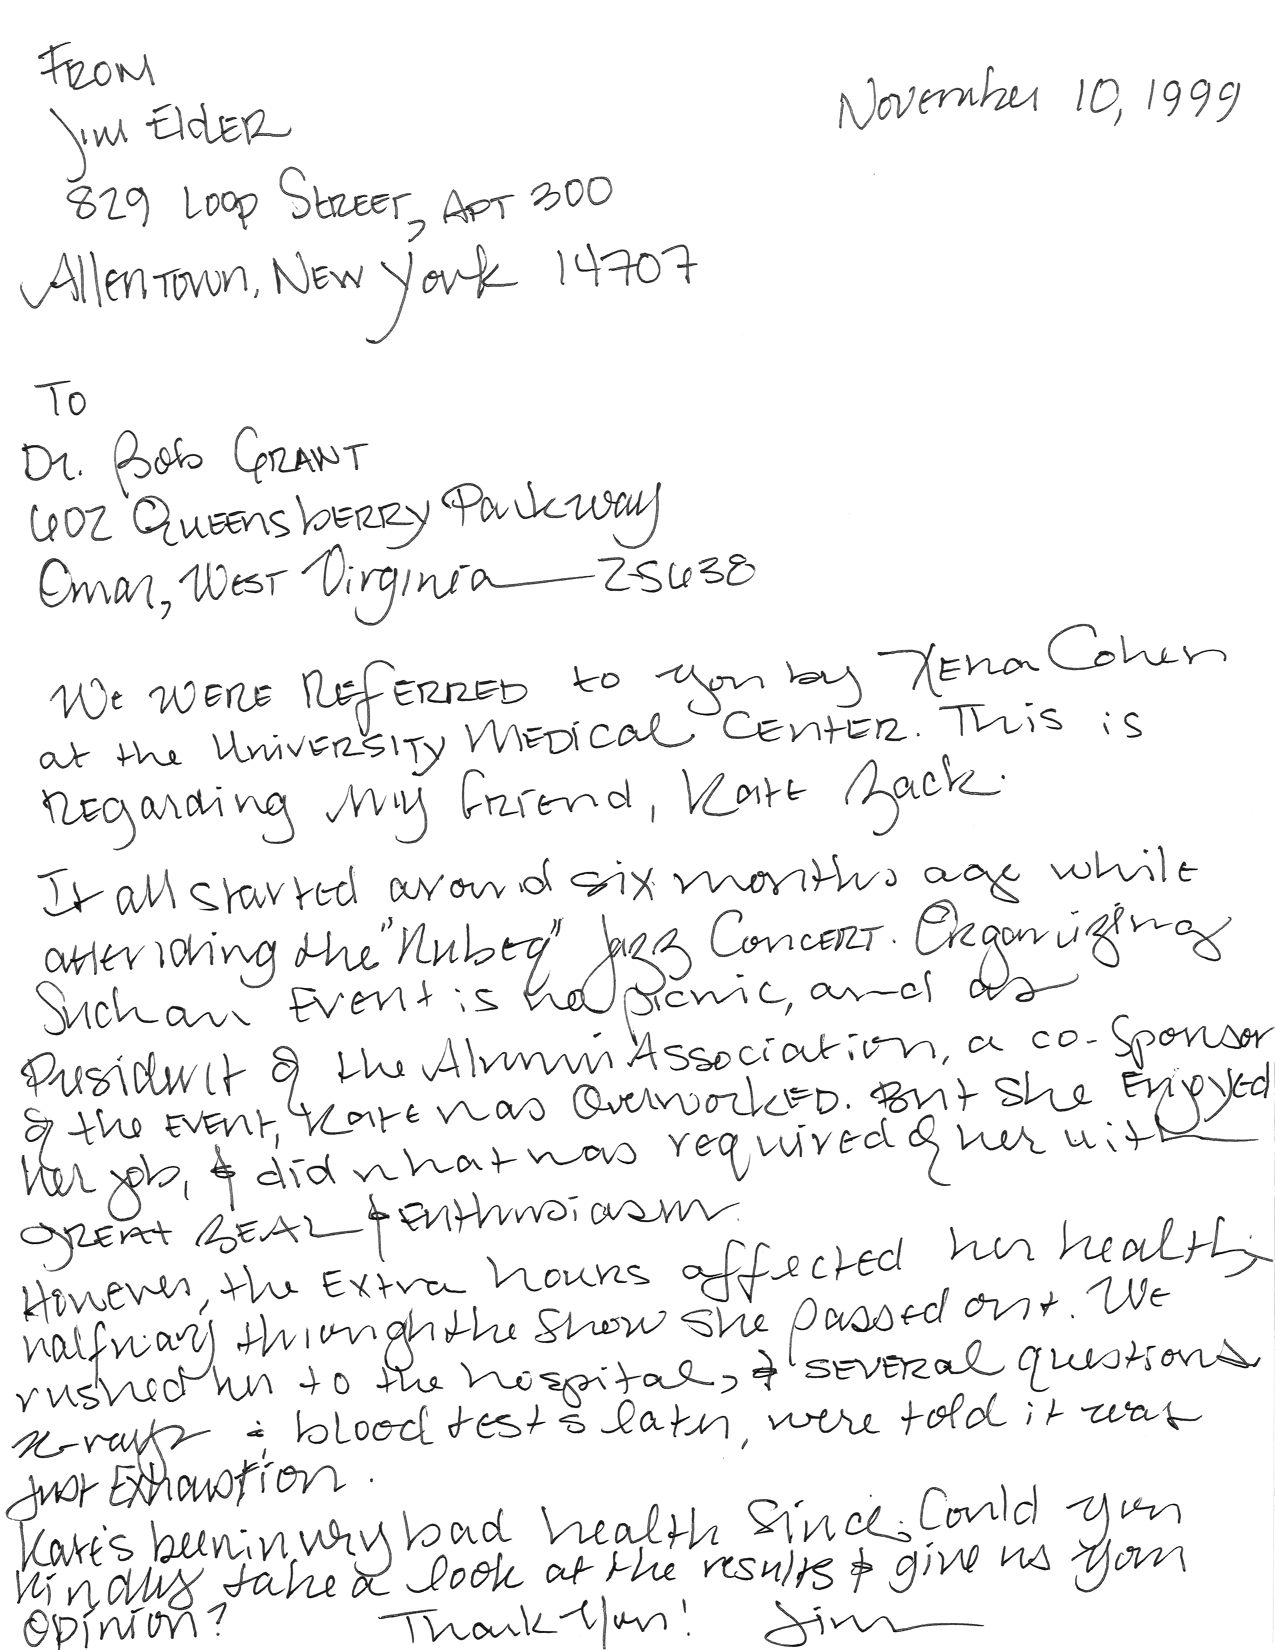 FROM
November 10, 1999
Jim Elder
829 Loop Street, Apt 300
Allentown, New York 14707
To
Dr. Bob Grant
602 Queensberry Parkway
Omar, West Virginia 25638
We were referred to you by Xena Cohen
at the University Medical Center. This is
regarding my friend, Kate Zack.
It all started around six months ago while
attending the "Rubeq" Jazz Concert. Organizing
such an event is no picnic, and as
President of the Alumni Association, a co-sponsor
of the event, Kate was overworked. But she enjoyed
her job, & did what was required of her with
great zeal & enthusiasm.
However, the extra hours affected her health;
halfway through the show she passed out. We
rushed her to the hospital, & several questions
x-rays & blood tests later, were told it was
just exhaustion.
Kate's been in very bad health since. Could you
kindly take a look at the results & give us your
opinion? Thank you! Jim